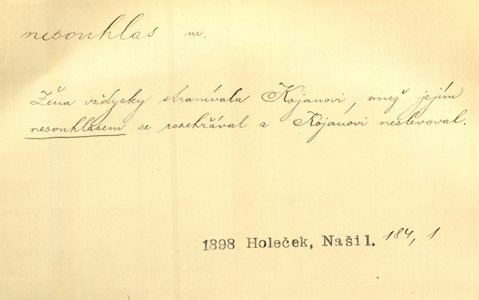 nesouhlas m.
Žena vždycky stranívala Kojanovi, muž jejím
nesouhlasem se rozehříval a Kojanovi neslevoval.
1898 Holeček, Naši l. 184, 1